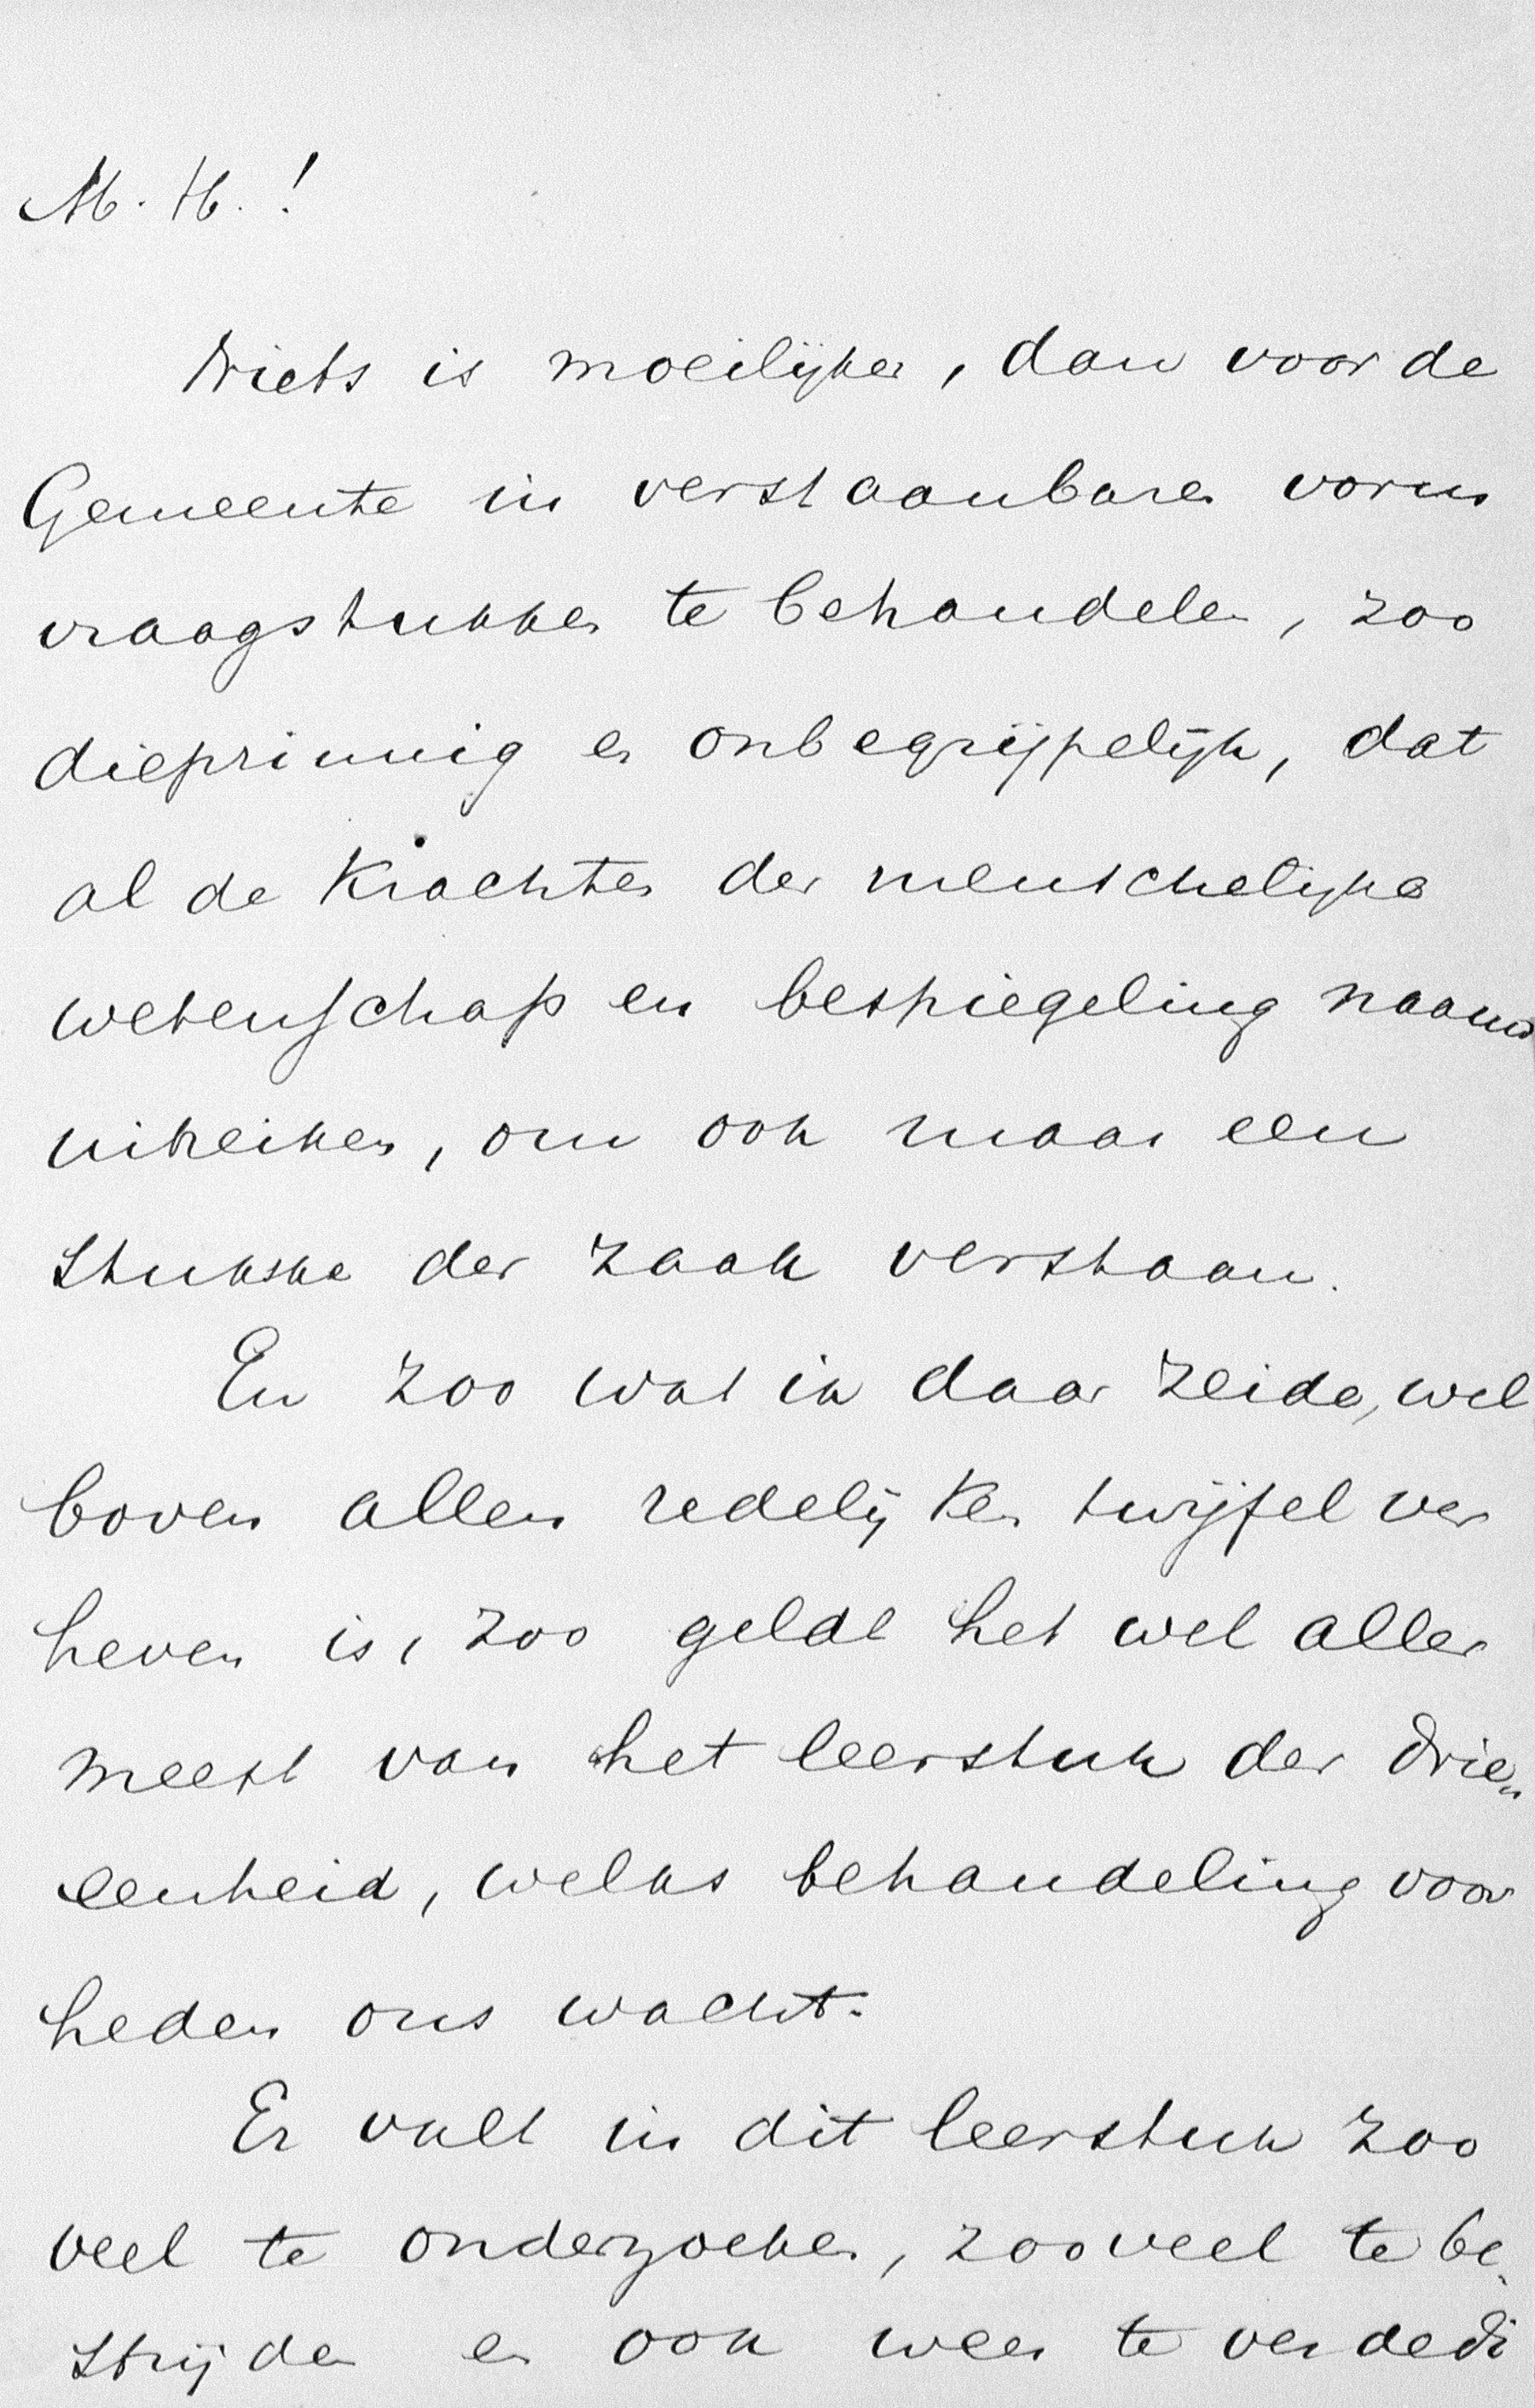 M. H.!
Niets is moeilijker, dan voor de
Gemeente in verstaanbaren vorm
vraagstukken te behandelen, zoo
diepzinnig en onbegrijpelijk, dat
al de krachten der menschelijke
wetenschap en bespiegeling naauw
uitreiken, om ook maar een
stukske der zaak verstaan.
En zoo wat ik daar zeide, wel
boven allen redelijken twijfel ver
heven is, zoo geldt het wel aller
meest van het leerstuk der drie„
eenheid, welks behandeling voor
heden ons wacht.
Er valt in dit leerstuk zoo
veel te onderzoeken, zooveel te be„
strijden en ook weer te verdedi